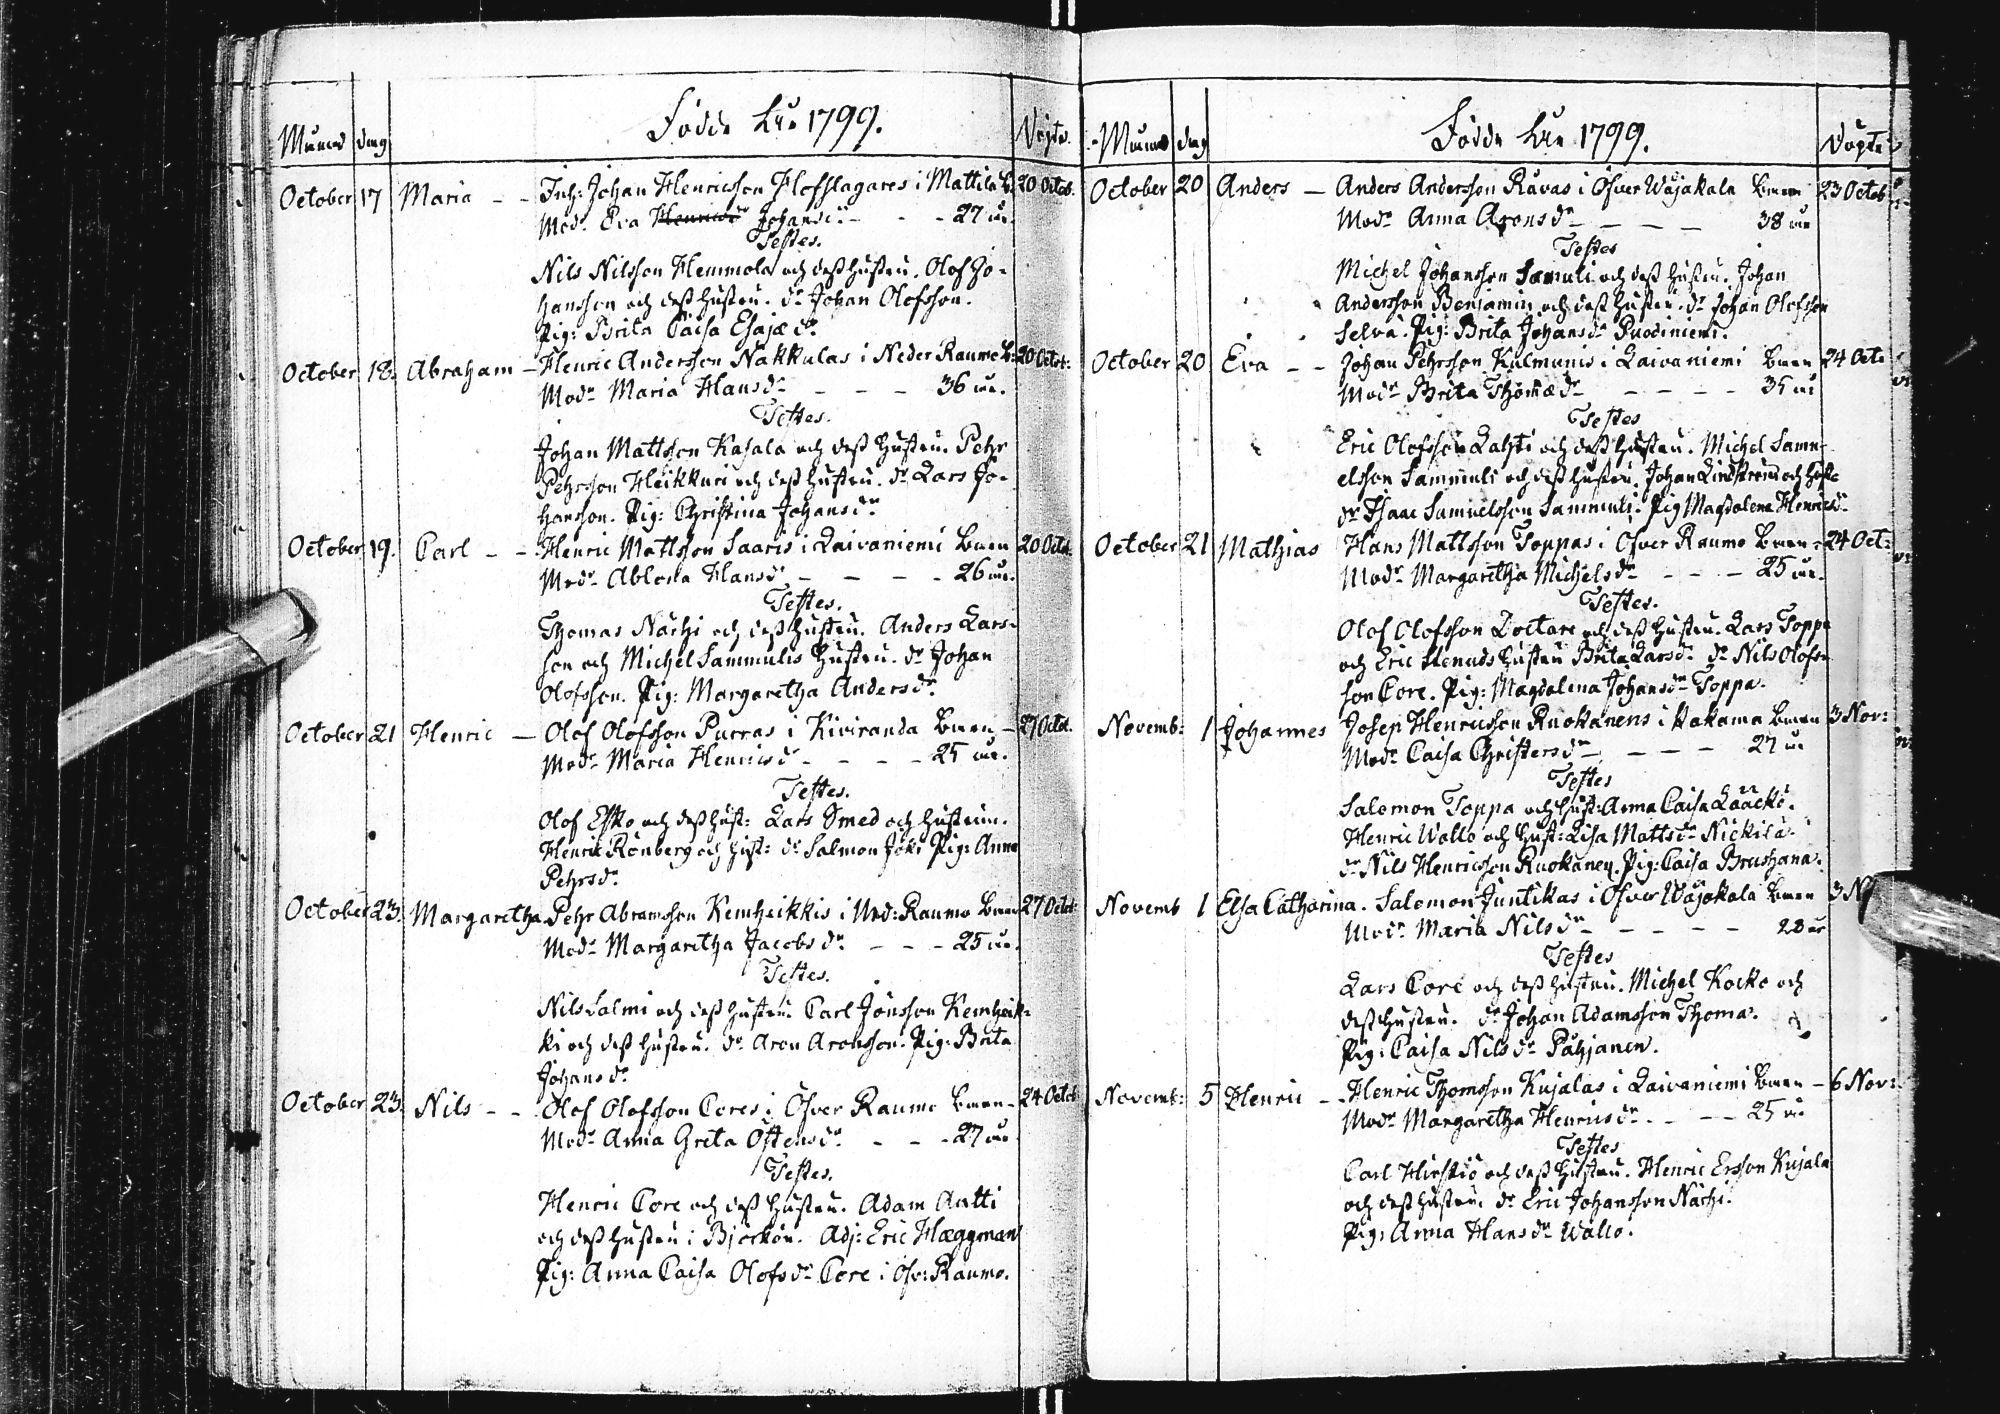 Födde År 1799.
Månad dag Döpte.
October 17 Maria - - Inh: Johan Henricsson Flofslagares i Mattila B: 20 Octob.
Modr Eva Henricsdr Johansdr - - - 27 år.
Testes.
Nils Nilsson Hemmola och dess hustru. Olof Jo-
hansson och dess hustru. dr Johan Olofsson.
Pig: Brita Caisa Esajædr
October 18. Abraham - Henric Andersson Nakkulas i Neder Raumo B: 20 Octob:
Modr Maria Hansdr - - - 36 år.
Testes.
Johan Mattsson Kasala och dess hustru. Pehr
Pehrsson Heikkuri och dess hustru. dr Lars Jo-
hansson. Pig: Christina Johansdr
October 19. Carl - - Henric Mattsson Saaris i Laivaniemi Barn 20 Octob.
Modr Ablona Hansdr - - - - 26 år.
Testes.
Thomas Nächi och dess hustru. Anders Lars-
son och Michel Sammulis hustru. dr Johan
Olofsson. Pig: Margaretha Andersdr
October 21 Henric - Olof Olofsson Purras i Kiviranda Barn - 27 Octob.
Modr Maria Henricsdr - - - - 25 år.
Testes.
Olof Esko och dess hust: Lars Smed och hustrun.
Henric Rönberg och hust: dr Salmon Joki Pig: Anna
Pehrsdr
October 23. Margaretha Pehr Abramsson Kemheikkis i Ned: Raumo Barn 27 Octob:
Modr Margaretha Jacobsdr - - - 25 år.
Testes.
Nils Salmi och dess hustru. Carl Jönsson Kemheik-
ki och dess hustru. dr Aron Aronsson. Pig: Brita
Johansdr
October 23. Nils - - Olof Olofsson Cores i Öfver Raumo Barn - 24 Octob
Modr Anna Greta Östensdr - - - 27 år
Testes.
Henric Core och dess hustru. Adam Antti
och dess hustru i Björkön. Adj: Eric Hæggman
Pig: Anna Caisa Olofsdr Core i Öfv: Raumo.
Födde År 1799.
Månad dag Döpte
October 20 Anders - Anders Andersson Rävas i Öfver Wojakala Barn 23 Octob
Modr Anna Aronsdr - - - - 38 år
Testes
Michel Johansson Samuli och dess hustru. Johan
Andersson Benjamin och dess hustru. dr Johan Olofsson
Selvä. Pig: Brita Johansdr Puodiniemi.
October 20 Eva - - Johan Pehrsson Kulmunis i Laivaniemi Barn 24 Oct:
Modr Brita Thomædr - - - - 35 år
Testes
Eric Olofsson Lahti och dess hustru. Michel Samu-
elsson Sammuli och dess hustru. Johan Lindström och hust:
dr Isaac Samuelsson Sammuli. Pig Magdalena Henricsdr
October 21 Mathias Hans Mattsson Toppas i Öfver Raumo Barn - 24 Oct:
Modr Margaretha Michelsdr - - - 25 år.
Testes.
Olof Olofsson Doctare och dess hustru. Lars Toppa
och Eric Stenuds hustru Brita Larsdr dr Nils Olofs-
son Core. Pig: Magdalena Johansdr Toppa.
Novemb: 1 Johannes Josep Henricsson Ruokanens i Kakama Barn 3 Nov:
Modr Caisa Christersdr - - - - 27 år
Testes
Salomon Toppa och hust: Anna Caisa Lääckö.
Henric Wallo och hust: Lisa Mattsdr Nickilä.
dr Nils Henricsson Ruokanen. Pig: Caisa Brushana.
Novemb 1 Elsa Catharina. Salomon Juntikas i Öfver Wojakala Barn 3 N
Modr Maria Nilsdr - - - - - 23 år
Testes
Lars Core och dess hustru. Michel Kocko och
dess hustru. dr Johan Adamsson Thoma.
Pig: Caisa Nilsdr Pahjanen.
Novemb: 5 Henric - Henric Thomsson Kujalas i Laivaniemi Barn - 6 Nov:
Modr Margaretha Henricsdr - - - 25 år
Testes
Carl Hirstiö och dess hustru. Henric Ersson Kujala
och dess hustru. dr Eric Johansson Nächi.
Pig: Anna Hansdr Wallo.